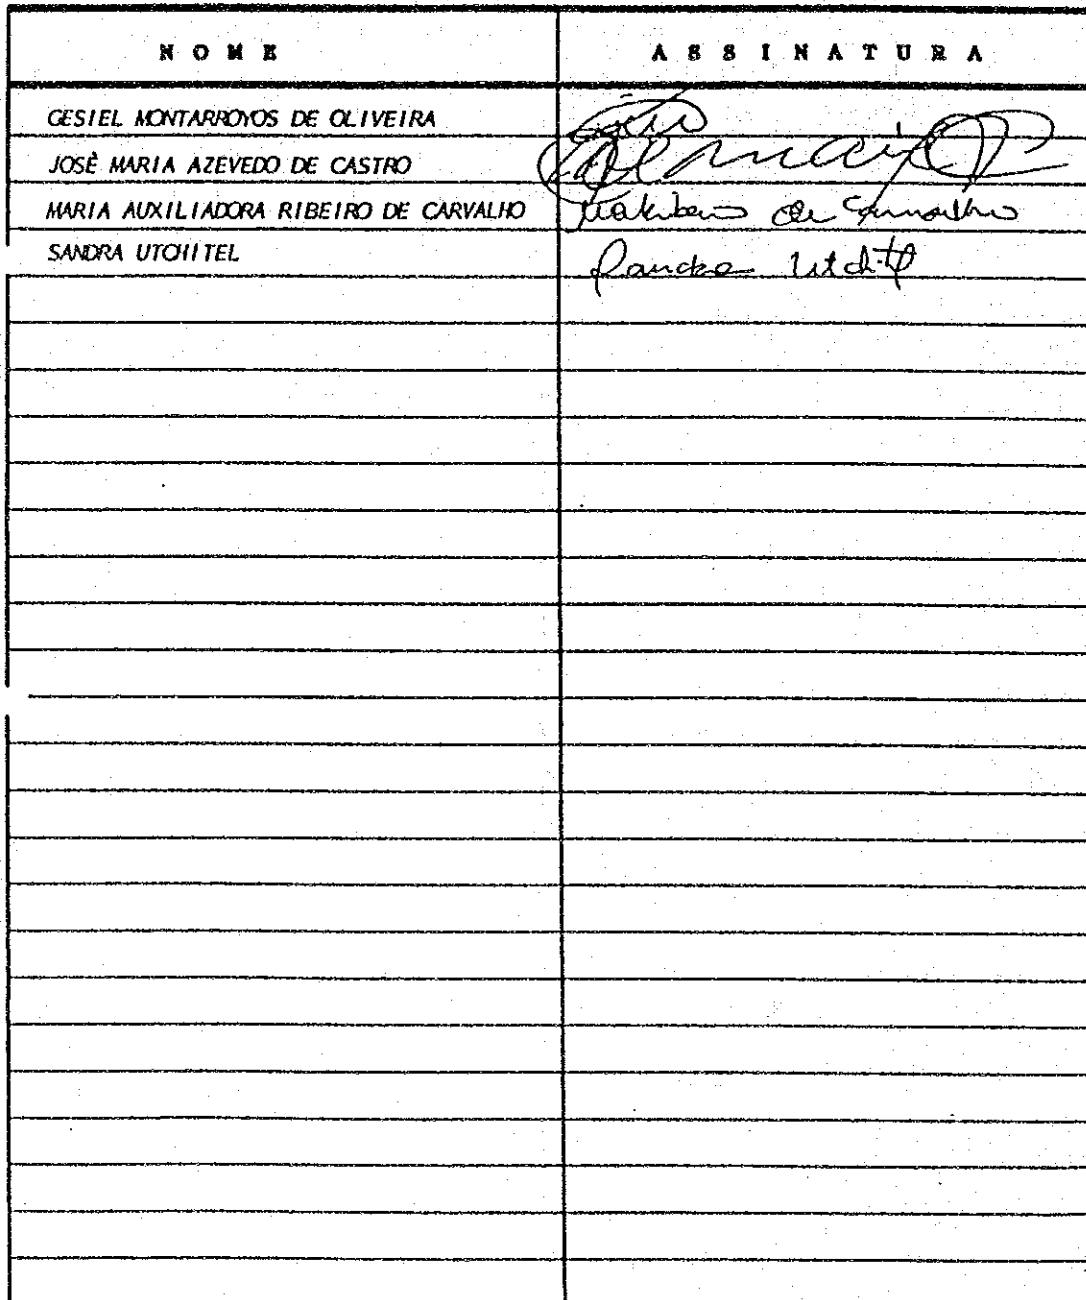 NOME ASSINATURA
GESIEL MONTARROYOS DE OLIVEIRA
JOSÈ MARIA AZEVEDO DE CASTRO
MARIA AUXILIADORA RIBEIRO DE CARVALHO de Carvalho
SANDRA UTCHITEL Sandra Utchitel